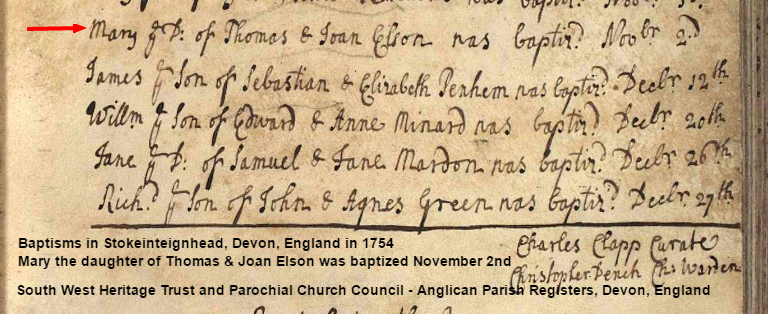 Mary ye Dr. of Thomas & Joan Elson was baptizd Novbr 2d
James ye Son of Sebastian & Elizabeth Penhem was baptizd. Decbr 12th
Willm ye Son of Edward & Anne Minard was baptizd Decbr 20th
Jane ye Dr. of Samuel & Jane Mardon was baptizd Decbr 26th
Richd ye Son of John & Agnes Green was baptizd Decbr 27th
Charles Clapp Curate
Christopher Chh Warden
Baptisms in Stokeinteignhead, Devon, England in 1754
Mary the daughter of Thomas & Joan Elson was baptized November 2nd
South West Heritage Trust and Parochial Church Council - Anglican Parish Registers, Devon, England